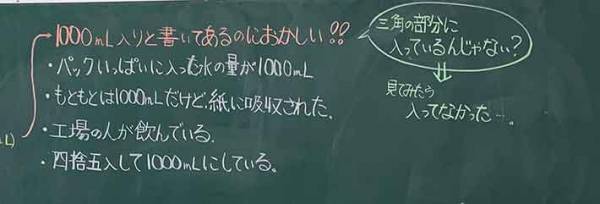 1000mL入りと書いてあるのにおかしい!!
・パックいっぱいに入った水の量が1000mL
・もともとは1000mLだけど、紙に吸収された。
・工場の人が飲んでいる。
・四捨五入して1000mLにしている。
三角の部分に
入っているんじゃない?
見てみたら
入ってなかった…。